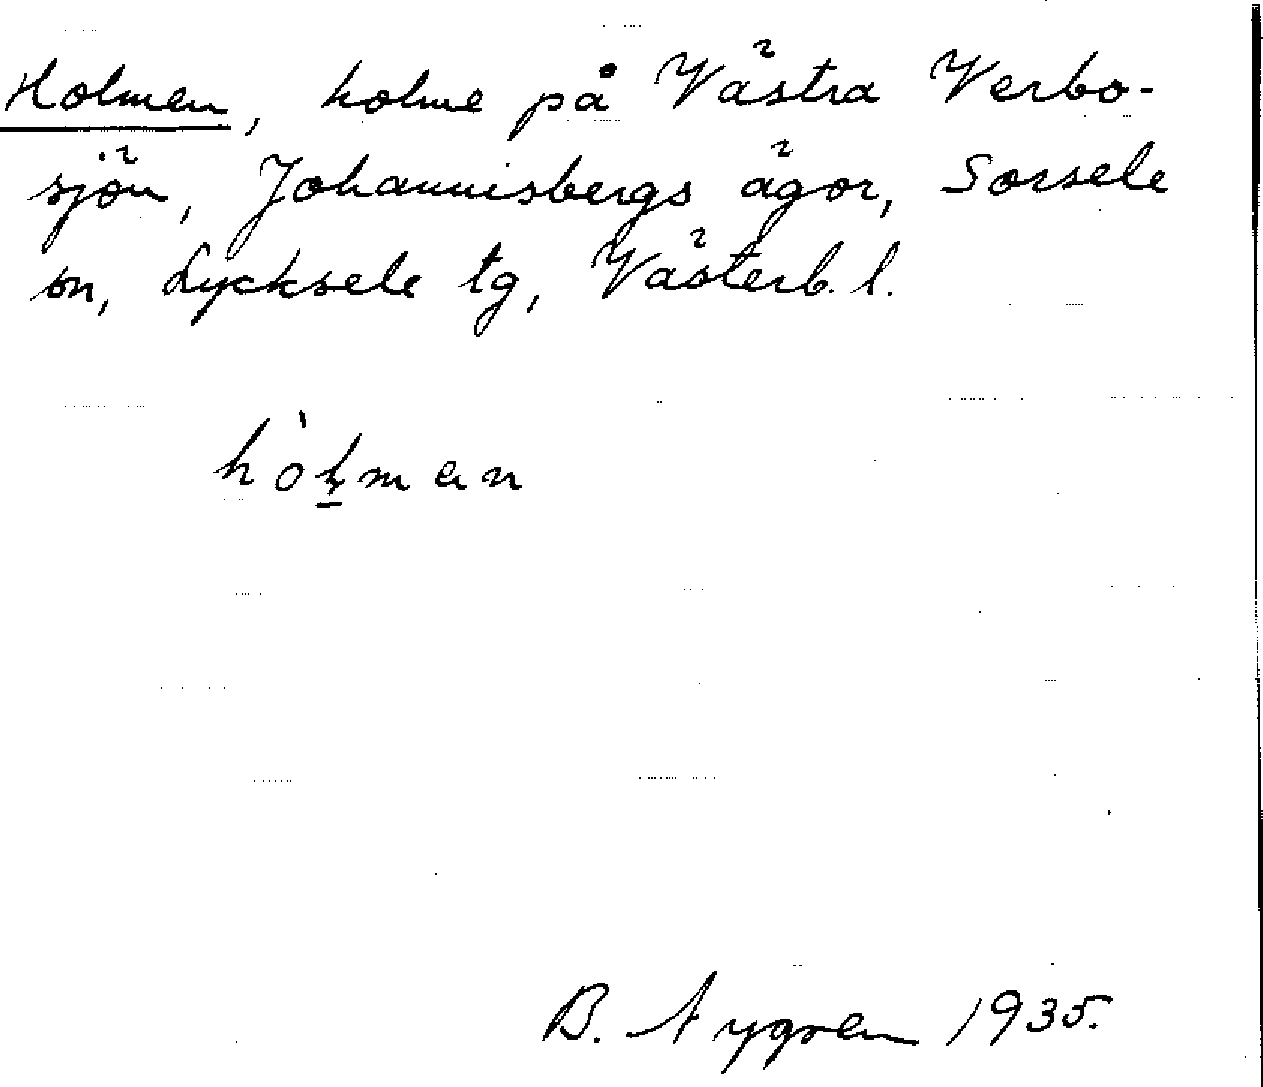 Holmen, holme på Västra Verbo-
sjön, Johannisbergs ägor, Sorsele
sn, Lycksele tg, Västerb. l.
hòl̲men
B. Nygren 1935.